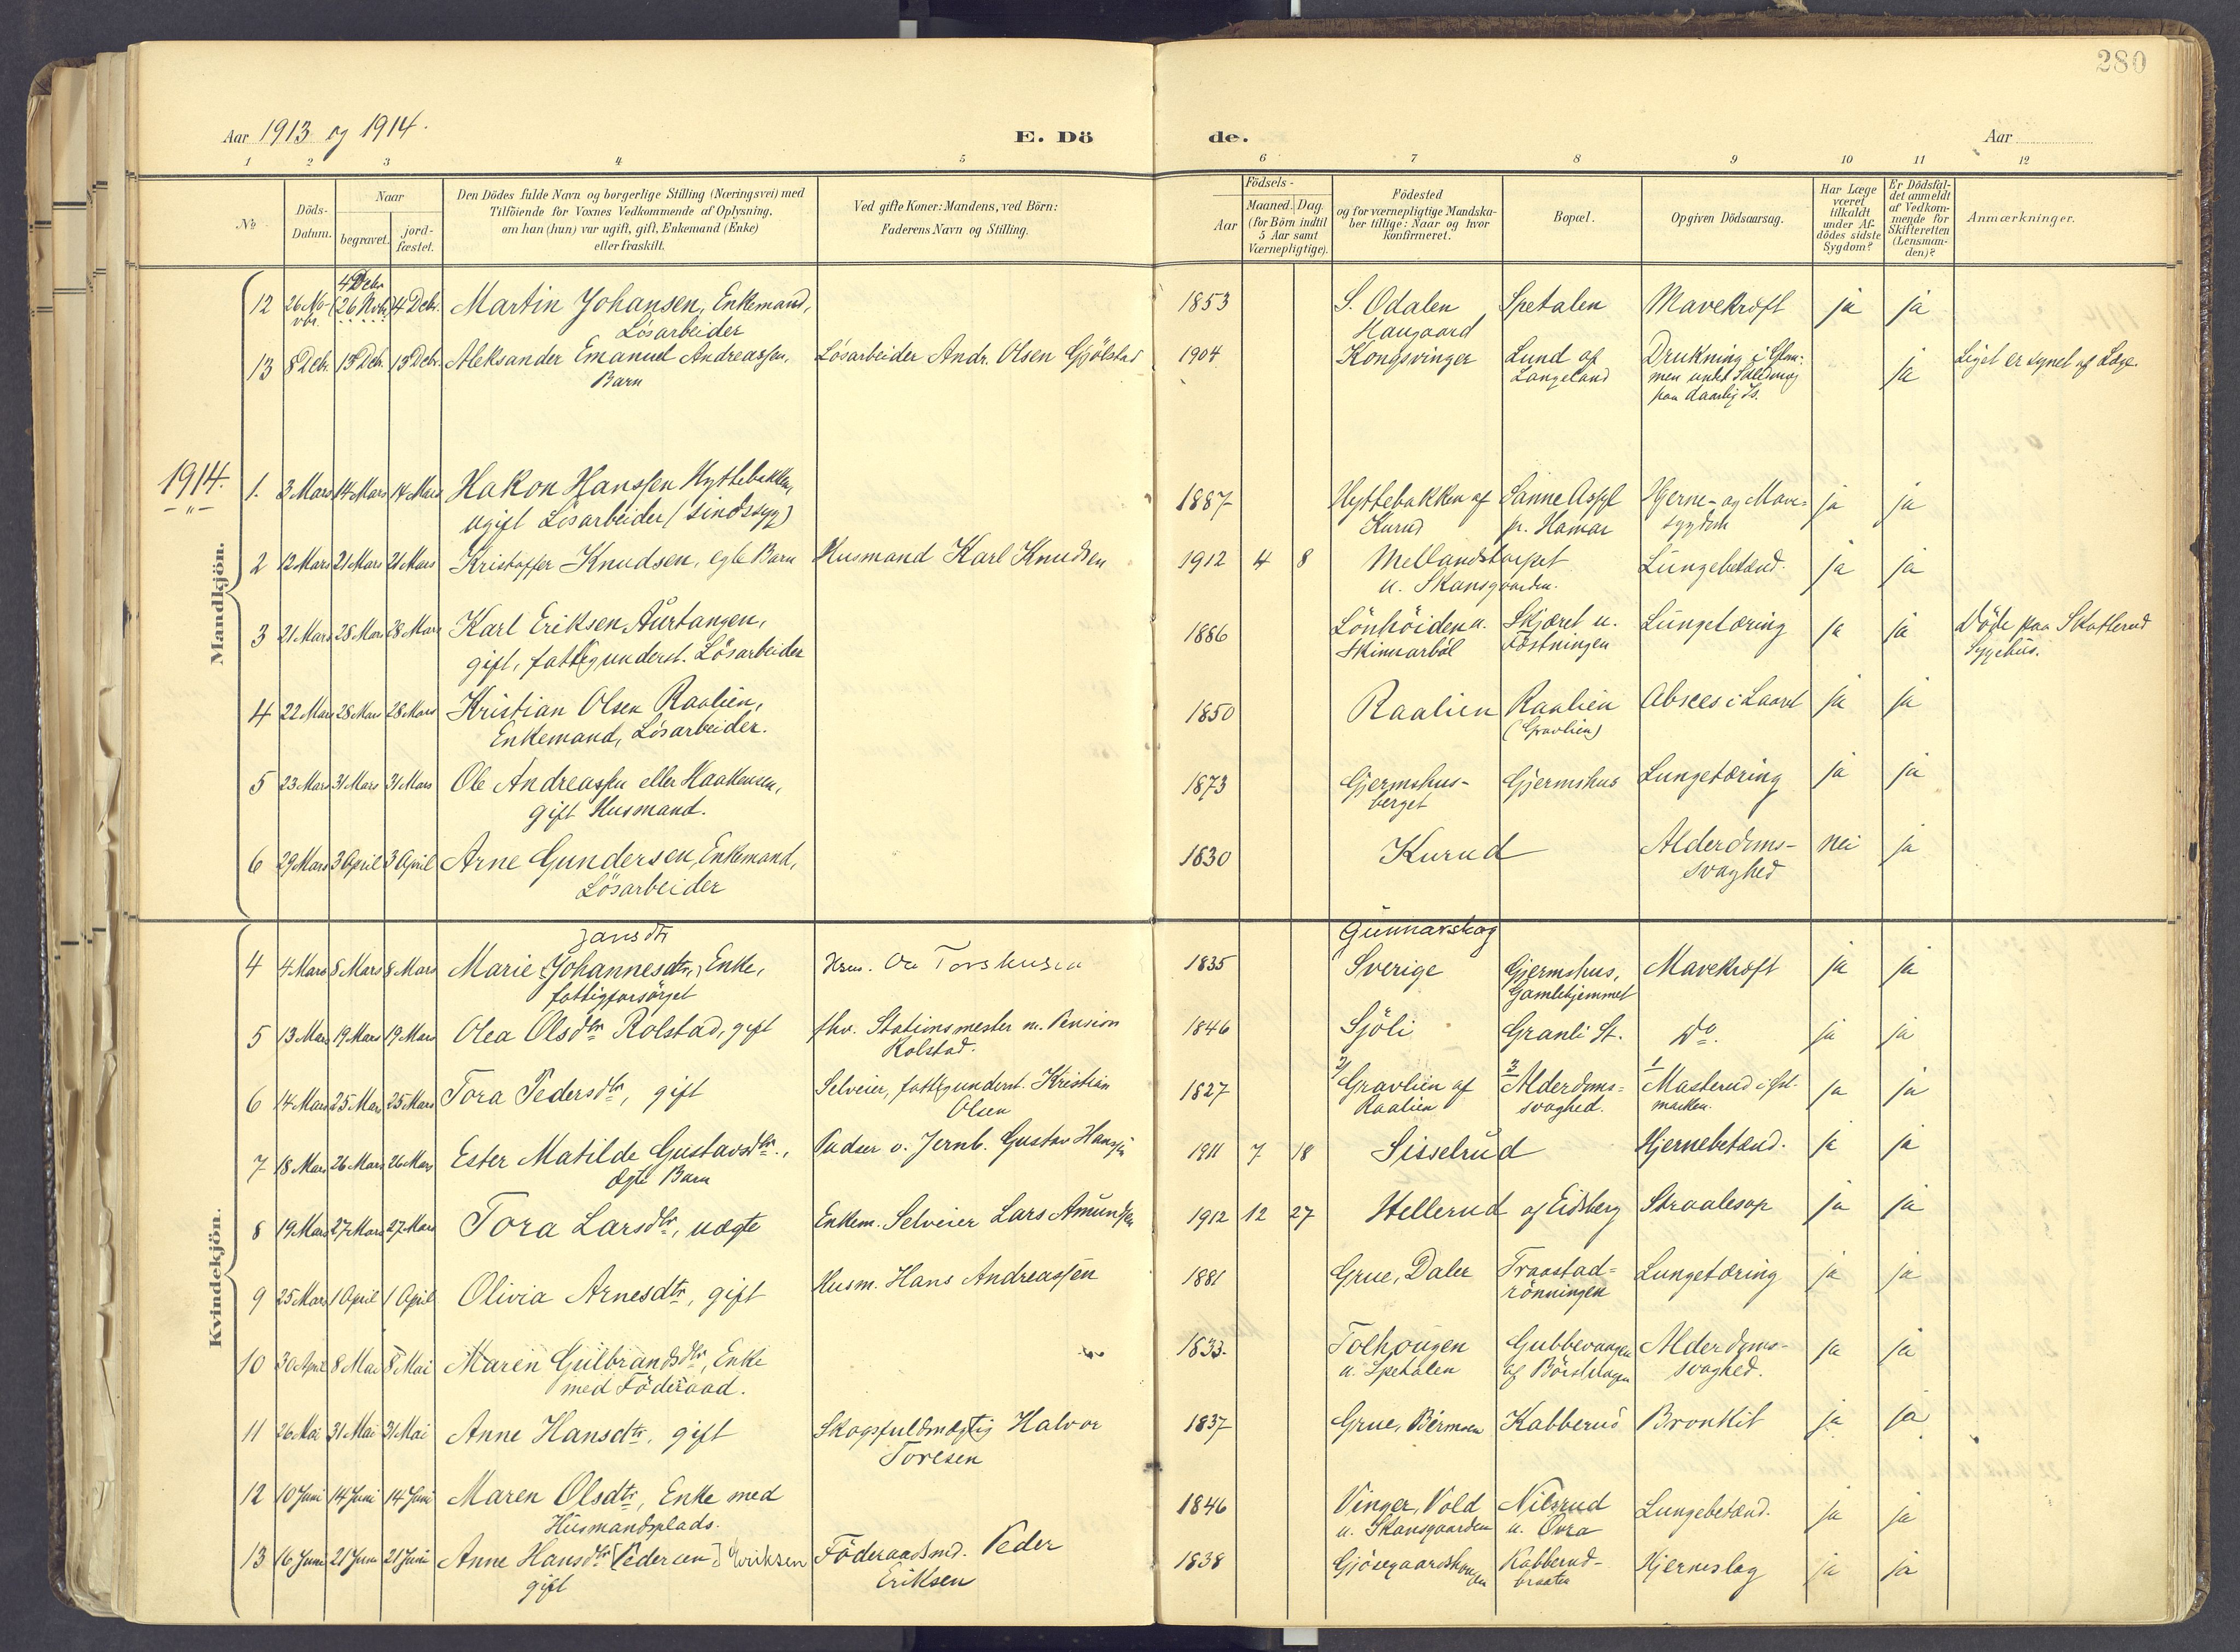 280
Aar 1913 og 1914.
E. Dö
de.
Aar
1 2 3 4 5 6 7 8 9 10 11 12
No
Döds-
Datum.
Naar
begravet.
jord-
fæstet.
Den Dödes fulde Navn og borgerlige Stilling (Næringsvei) med
Tilföiende for Voxnes Vedkommende af Oplysning,
om han (hun) var ugift, gift, Enkemand (Enke)
eller fraskilt.
Ved gifte Koner: Mandens, ved Börn:
Faderens Navn og Stilling.
Födsels-
Aar
Maaned. Dag.
(for Börn indtil
5 Aar samt
Værnepligtige).
Födested
og for værnepligtige Mandska-
ber tillige: Naar og hvor
konfirmeret.
Bopæl.
Opgiven Dödsaarsag.
Har Læge
været
tilkaldt
under Af-
dödes sidste
Sygdom?
Er Dödsfal-
det anmeldt
af Vedkom-
mende for
Skifteretten
(Lensman-
den)?
Anmærkninger.
Mandkjön.
4 Debr.
12 26 No- (26 Novbr) 4 Debr. Martin Johansen, Enkemand, 1853 S. Odalen Spetalen Mavekræft ja ja
vbr. Lösarbeider Haugaard
13 8 Debr. 13 Debr. 13 Debr. Aleksander Emanuel Andreassen, Lösarbeider Andr. Olsen Gjölstad 1904 Kongsvinger Lund af Drukning i Glom- ja Liget er synet af Læge.
Barn Langeland men under
paa daarlig Is.
1914. 1. 3 Mars 14 Mars 14 Mars Hakon Hanssen Hyttebakken, 1887 Hyttebakken af Sanne Asyl Hjerne- og Mave- ja ja
ugift Lösarbeider (Sindssyg) Kurud pr. Hamar sygdom
2 12 Mars 21 Mars 21 Mars Kristoffer Knudsen, egte Barn Husmand Karl Knudsen 1912 4 8 Mellandstorpet Lungebetænd. ja ja
u. Skansgaarden.
3 21 Mars 28 Mars 28 Mars Karl Eriksen Aurtangen, 1886 Lönhöiden u. Skjæret u. Lungetæring ja ja Döde paa Skotterud
gift, fattigunderst. Lösarbeider Skinnarböl Fæstningen Sygehus.
4 22 Mars 28 Mars 28 Mars Kristian Olsen Raalien, 1850 Raalien Raalien Absces i Laaret ja ja
Enkemand, Lösarbeider. (Gravlien)
5 23 Mars 31 Mars 31 Mars Ole Andreassen eller Haakensen, 1873 Gjermshus- Gjermshus Lungetæring ja ja
gift Husmand. berget
6 29 Mars 3 April 3 April Arne Gundersen, Enkemand, 1830 Kurud Alderdoms- nei ja
Lösarbeider svaghed
Kvindekjön.
Jansdtr Gunnarskog
4 4 Mars 8 Mars 8 Mars Marie Johannesdtr, Enke, Hsm. Torshusen 1835 Sverige Gjermshus, Mavekræft ja ja
fattigforsörget Gamlehjemmet
5 13 Mars 19 Mars 19 Mars Olea Olsdtr Rolstad, gift fhv. Stationsmester m. Pension 1846 Sjöli Granli St. Do. ja ja
Rolstad.
6 14 Mars 25 Mars 25 Mars Tora Pedersdtr, gift Selveier, fattigunderst. Kristian 1827 2/ Gravlien af 3 Alderdoms- 1 Masterud i Øst- ja ja
Olsen Raalien svaghed. marken.
7 18 Mars 26 Mars 26 Mars Ester Matilde Gustavsdtr., Pudser v. Jernb. Gustav Hanssen 1911 7 18 Sisselrud Hjernebetænd. ja ja
ægte Barn
8 19 Mars 27 Mars 27 Mars Tora Larsdtr, uægte Enkem. Selveier Lars Amundsen 1912 12 27 Hellerud af Eidsberg Straalesop ja ja
9 25 Mars 1 April 1 April Olivia Arnesdtr, gift Husm. Hans Andreassen 1881 Grue, Daler Traastad- Lungetæring ja ja
rönningen
10 30 April 8 Mai 8 Mai Maren Gulbrandsdtr, Enke 1833. Tolhougen Gubbevangen Alderdoms- ja ja
med Föderaad. u. Spetalen svaghed.
11 26 Mai 31 Mai 31 Mai Anne Hansdtr, gift Skogsfuldmægtig Halvor 1837 Grue, Kabberud Bronkit ja ja
Toresen
12 10 Juni 14 Juni 14 Juni Maren Olsdtr, Enke med 1846 Vinger, Vold Nilsrud Lungebetænd. ja ja
Husmandsplads. u. Skansgaarden u. Øvra
13 16 Juni 21 Juni 21 Juni Anne Hansdtr [Pedersen] Eriksen Föderaadsmd. Peder 1838 Gjösegaardshougen Kabberud- Hjerneslag ja ja
gift Eriksen braaten